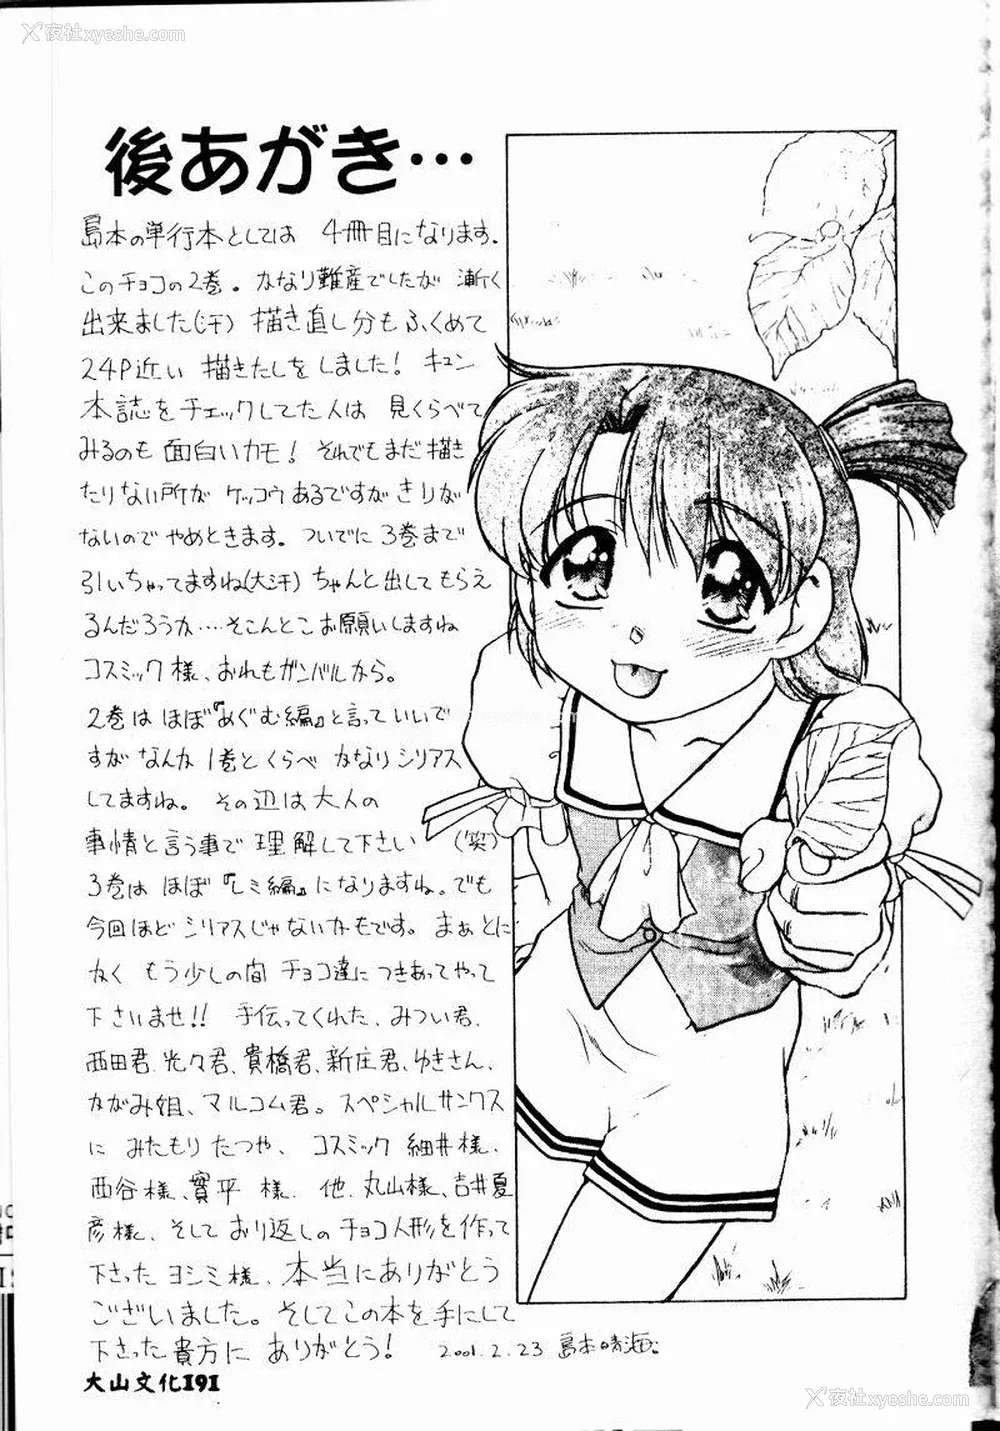 夜社xyeshe.com
夜社xyeshe.com
後あがき…
島本の単行本としては 4冊目になります。
このチョコの2巻。かなり難産でしたが 漸く
出来ました(汗) 描き直し分もふくめて
24P近い 描きたしをしました! キュン
本誌をチェックしてた人は 見くらべて
みるのも 面白いカモ! それでもまだ描き
たりない所が ケッコウあるですがきりが
ないので やめときます。ついでに3巻まで
引いちゃってますね(大汗) ちゃんと出してもらえ
るんだろうか‥‥そこんとこお願いしますね
コスミック様、おれもガンバルから。
2巻は ほぼ『めぐむ編』と言っていいで
すが なんか 1巻とくらべ かなりシリアス
してますね。 その辺は大人の
事情と言う事で 理解して下さい (笑)
3巻は ほぼ『レミ編』になりますね。でも
今回ほど シリアスじゃないかもです。まぁとに
かく もう少しの間 チョコ達に つきあってやって
下さいませ!! 手伝ってくれた、みつい君、
西田君、光々君、貴橋君、新庄君、ゆきさん、
ながみ姐、マルコム君。スペシャルサンクス
に みたもり たつや、 コスミック 細井様、
西谷様、實平 様、 他、丸山様、吉井夏
彦様、そして おり返しの チョコ人形を作って
下さった ヨシミ様、本当にありがとう
ございました。そしてこの本を手にして
下さった貴方に ありがとう! 2001.2.23 島本晴海。
大山文化191
夜社xyeshe.com
夜社xyeshe.com